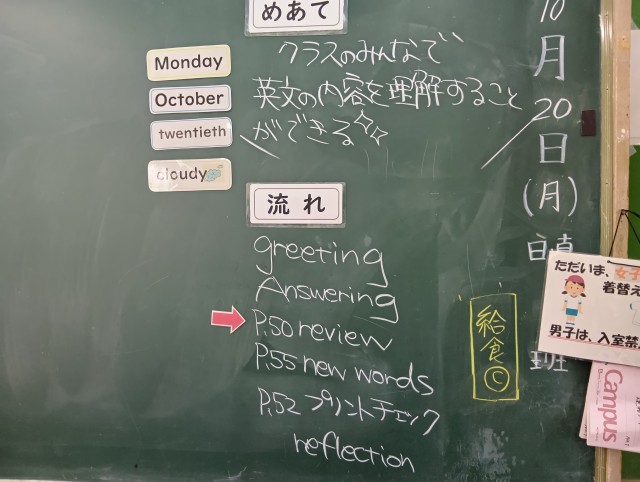 めあて
クラスのみんなで
英文の内容を理解すること
ができる☆☆
Monday
October
twentieth
cloudy
流れ
greeting
Answering
P.50 review
P.55 new words
P.52 プリントチェック
reflection
10
月
20
日
(月)
日直
班
給食
Ⓒ
ただいま、女子
着替え
男子は、入室禁
Campus